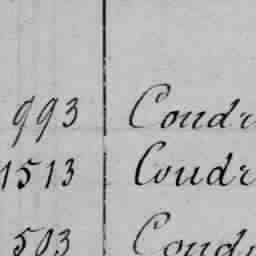 993 Coudr
1513 Coudr
503 Coudr